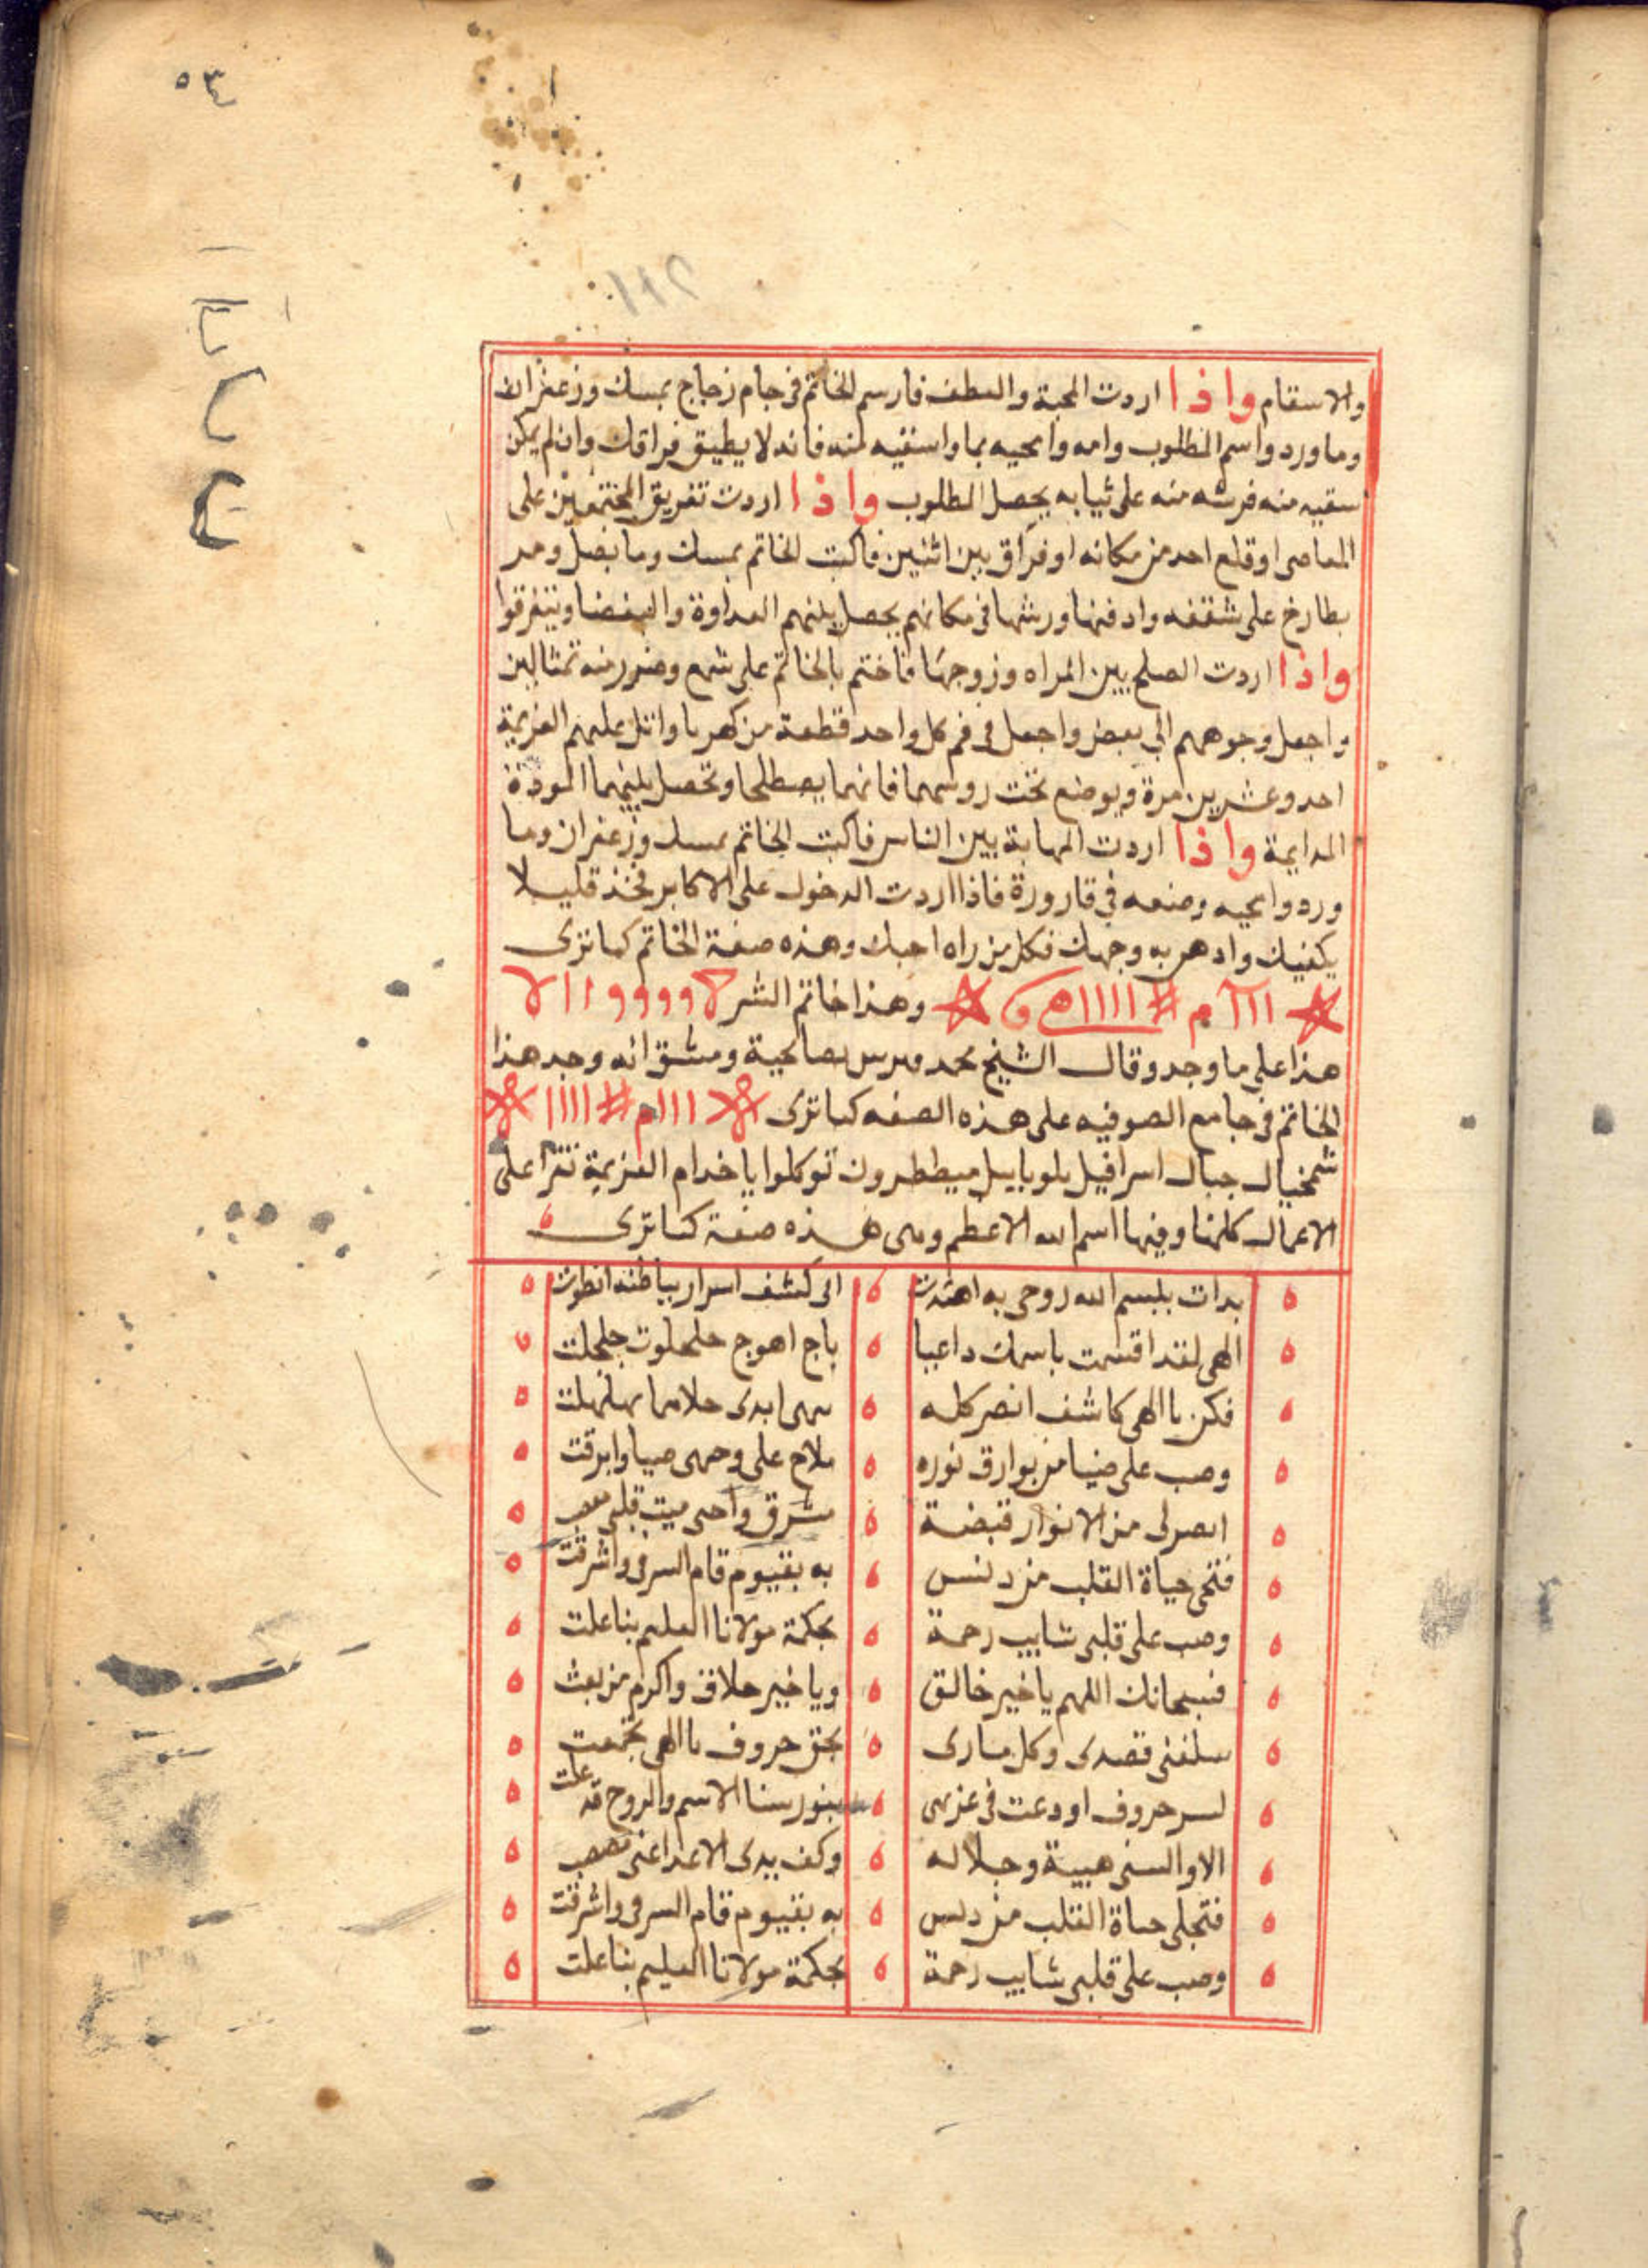 ٥٣
والاسقام واذا اردت المحبة والعطف فارسم الخاتم في جام زجاج بمسك وزعفران
وماورد واسم المطلوب وامه وامحيه بما واسقيه لمنه فانه لا يطيق فراقك وان لم يمكن
سقيه منه فرشه منه على ثيابه يحصل المطلوب واذا اردت تفريق المجتمعين على
المعاصي او قلع احد من مكانه او فراق بين اثنين فاكتب الخاتم بمسك وما بصل ومر
بطارخ على شقفه وادفنها ورشها في مكانهم يحصل بينهم العداوة والبغضا ويتفرقوا
واذا اردت الصلح بين المراه وزوجها فاختم بالخاتم على شمع وصور منه تمثالين
واجعل وجوههم الي بعض واجعل في فم كل واحد قطعة من كهربا واتل عليهم العزيمة
احد وعشرين مرة ويوضع تحت روسهما فانهما يصطلحا وتحصل بينهما المودة
المدايمة واذا اردت المهابة بين الناس فاكتب الخاتم بمسك وزعفران وما
ورد وامحيه وضعه في قارورة فاذا اردت الدخول على الاكابر فخذ قليلا
يكفيك وادهن به وجهك فكل من راه احبك وهذه صفة الخاتم كما ترى
وهذا خاتم الشر
هذا على ما وجد وقال الشيخ محمد بصالحية ومشق انه وجد هذا
الخاتم في جامع الصوفيه على هذه الصفه كما ترى
جبال اسرافيل ميططرون توكلوا يا خدام العزيمة تقرا على
الاعمال كلها وفيها اسم الله الاعظم وهي هذه صفة كما ترى
بدات ببسم الله روحي به اهتدت الى كشف اسرار بباطنه انطوت
الهي لقد اقسمت باسمك داعيا باج اهوج جلجلوت جلجلت
فكن يا الهي كاشف الضر كله
وصب على ضيا من بوارق نوره
من الانوار قبضة واحي ميت قلبي
حياة القلب من دنس به بقيوم قام السر في واشرقت
وصب على قلبي شابيب رحمة بحكمة مولانا العليم بنا علت
فسبحانك اللهم يا خير خالق ويا خير خلاق واكرم من بعث
قصدي وكل ماربي بحق حروف يا الهي تجمعت
لسر حروف اودعت في بنور سنا الاسم والروح قد علت
الا والبسني هيبة وجلاله وكف يدي الاعدا عني
فتجلى حياة القلب من دنس به بقيوم قام السر في واشرقت
وصب على قلبي شابيب رحمة بحكمة مولانا العليم بنا علت